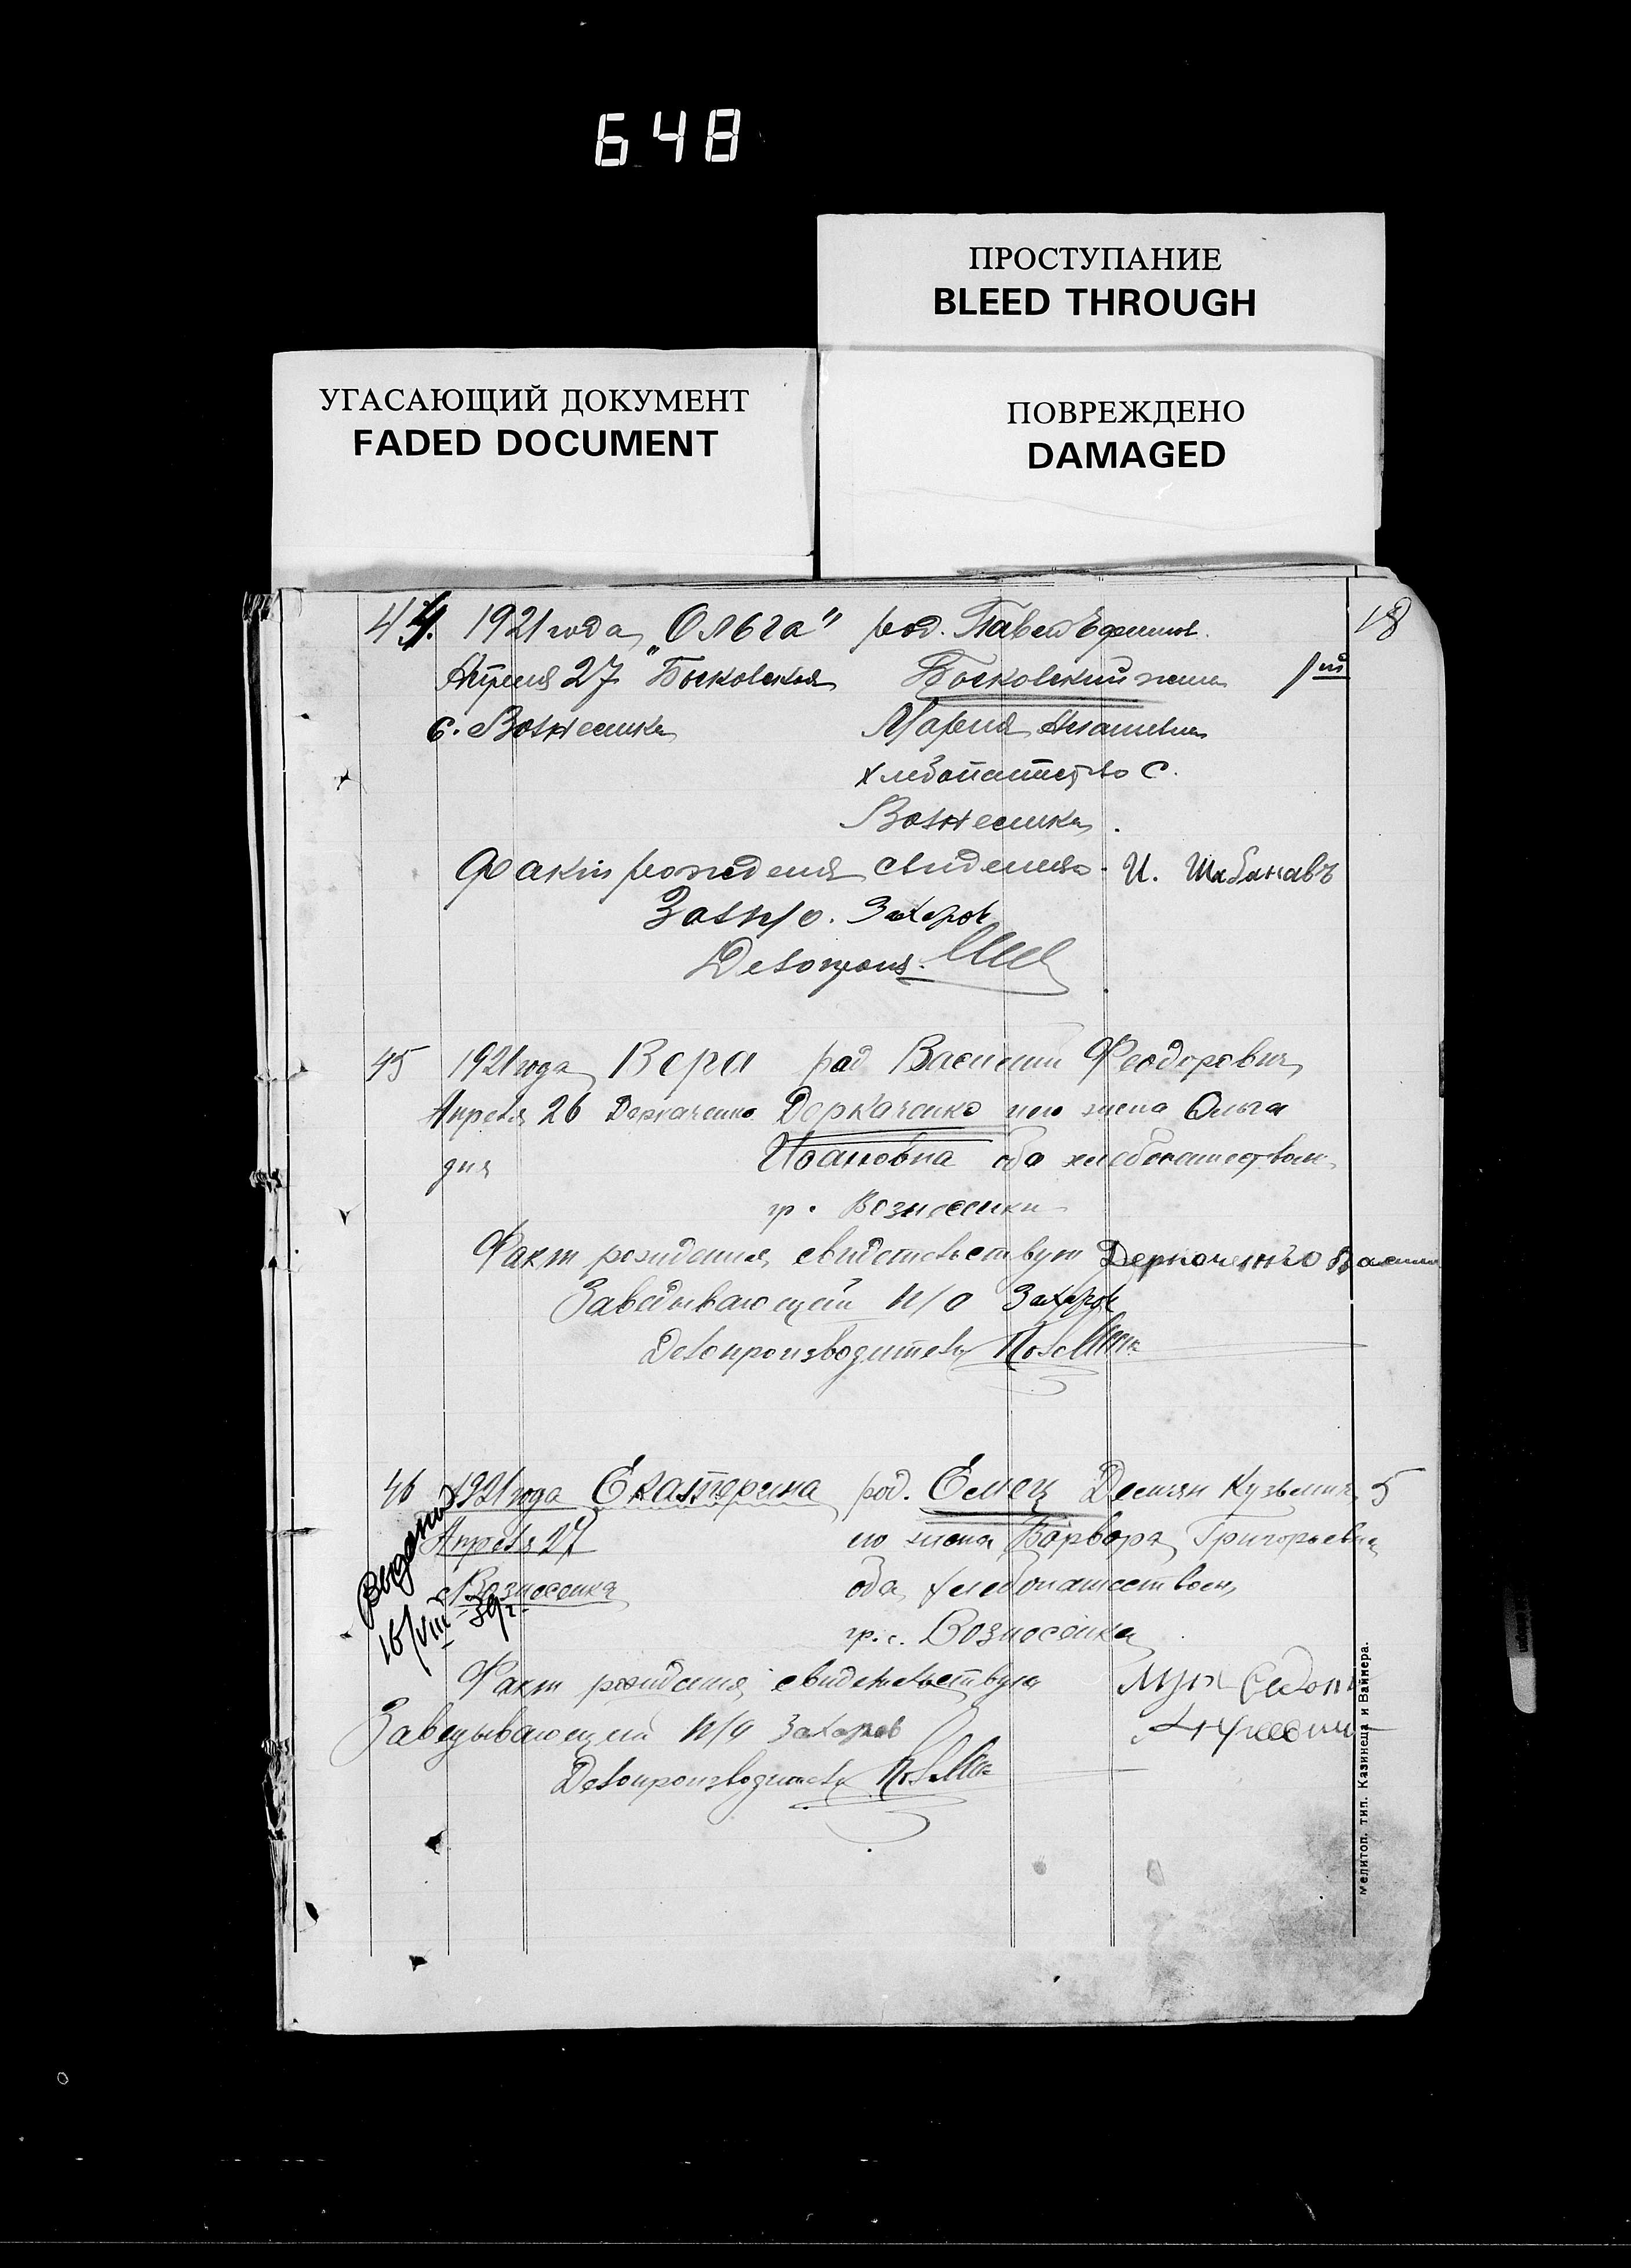 648
ПРОСТУПАНИЕ
BLEED THROUGH
УГАСАЮЩИЙ ДОКУМЕНТ
FADED DOCUMENT
ПОВРЕЖДЕНО
DAMAGED
44. 1921 года „Ольга" род. Павел Ефимов. 18
Апреля 27 Босковская Босковский жена 1й
с. Вознесенка Мария
хлебопашество с.
Вознесенка.
Факт рождения И. Шабановъ
Зав п/о. Захаров
Делопроиз.
45 1921 года Вера род Василий Феодорович
Апреля 26 Деркаченко Деркаченко его жена Ольга
дня Ивановна оба хлебопашеством
гр. Вознесенки
Факт рождения свидетельствует Деркаченко Васили
Заведывающий п/о Захаров
Делопроизводитель
46 1921 года Екатерина род. Емец Демян Кузьмич 5
Апреля 27 его жена Варвора Григорьевна
с Вознесенка оба хлебопашеством
гр. с. Вознесенка
Выдано
16/VIII-39г.
Факт рождения свидетельствую
Заведывающий п/о Захаров
Делопроизводитель
Мелитоп. тип. Казинеца и Вайнера.